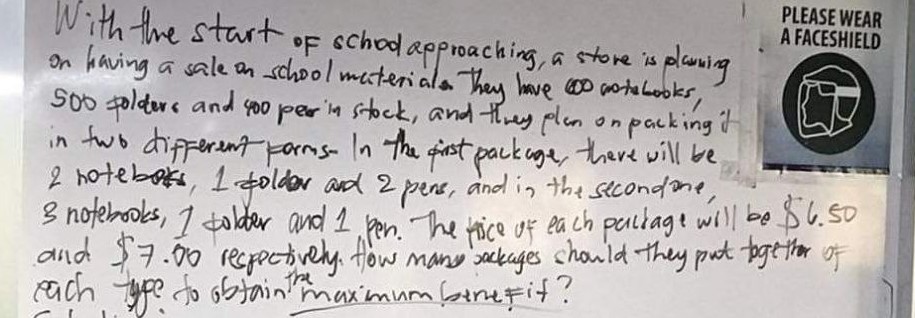 With the start of school approaching, a store is planning
on having a sale on school materials. They have 600 notebooks,
500 folders and 400 pens in stock, and they plan on packing it
in two different forms. In the first package, there will be
2 notebooks, 1 folder and 2 pens, and in the second one,
3 notebooks, 1 folder and 1 pen. The price of each package will be $6.50
and $7.00 respectively. How many packages should they put together of
each type to obtain the maximum benefit?
PLEASE WEAR
A FACESHIELD